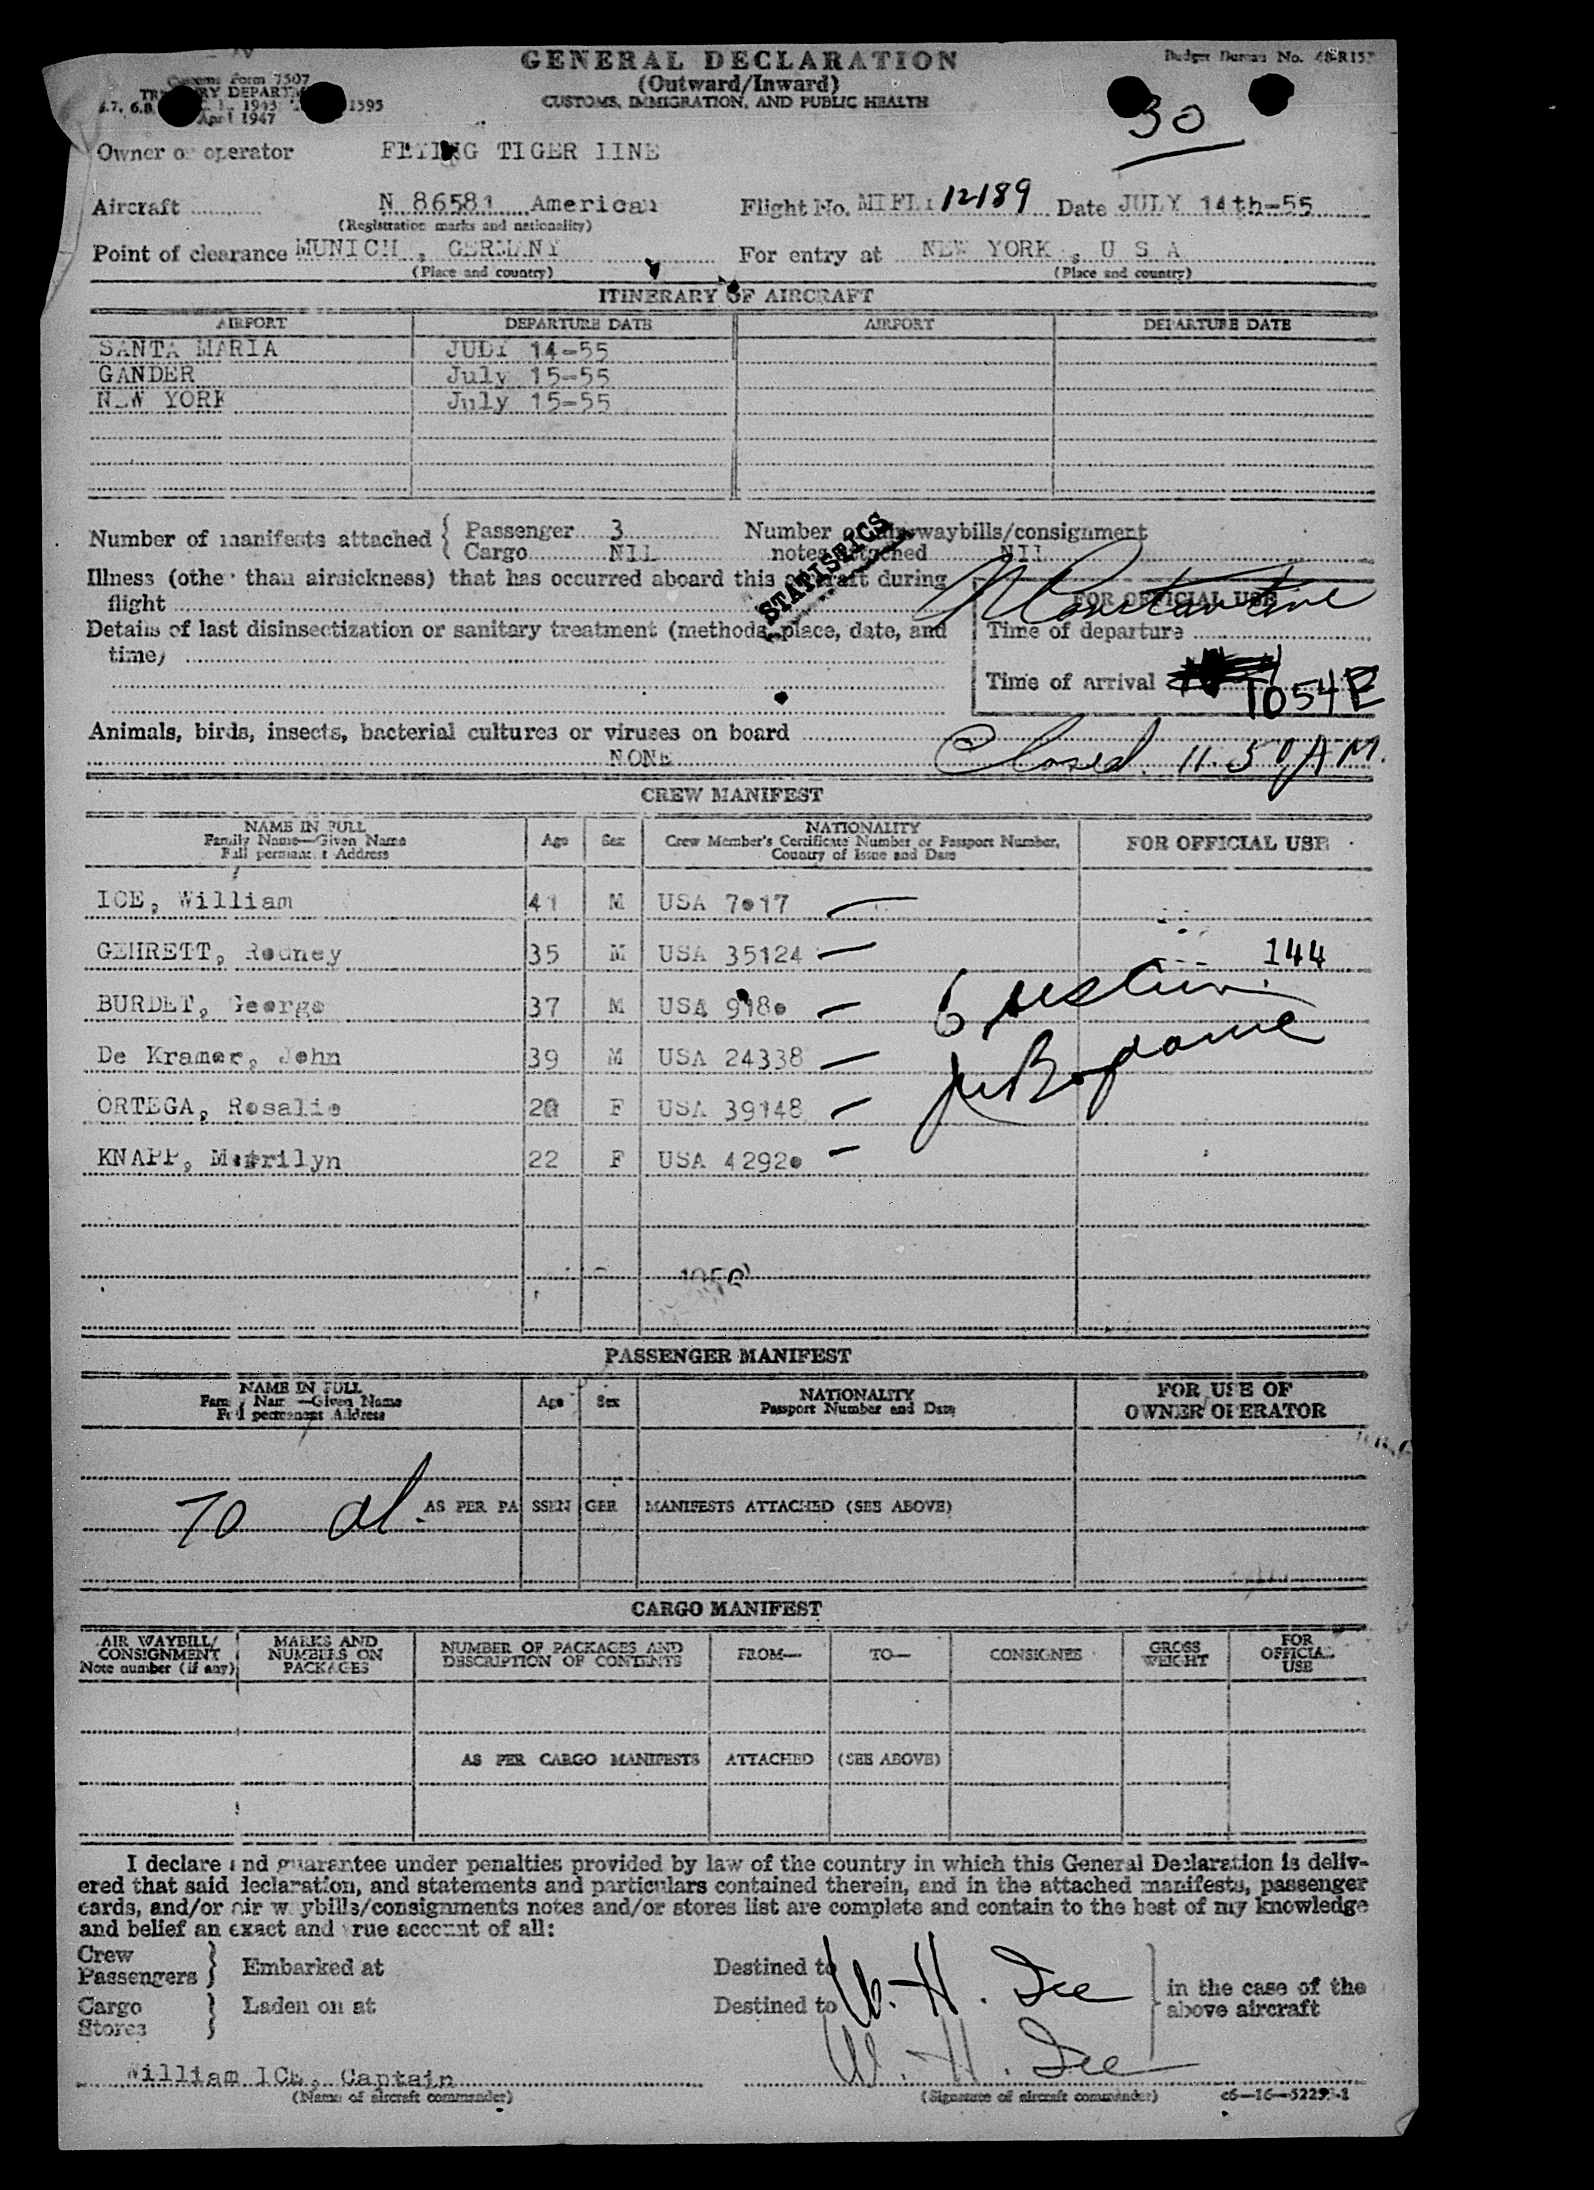 GENERAL DECLARATION
(Outward/Inward)
CUSTOMS, IMMIGRATION, AND PUBLIC HEALTH
Customs Form 7507
April 1947
Budget Bureau No. 48-R15
30
Owner or operator FLYING TIGER LINE
Aircraft N 86581 American Flight No. 12189 Date JULY 14th-55
(Registration marks and nationality)
Point of clearance MUNICH , GERMANY For entry at NEW YORK , U S A
(Place and country) (Place and country)
ITINERARY OF AIRCRAFT
AIRPORT DEPARTURE DATE AIRPORT DEPARTURE DATE
SANTA MARIA JULY 14-55
GANDER July 15-55
NEW YORK July 15-55
Number of manifests attached { Passenger 3 Number of air waybills/consignment
Cargo NIL notes attached NIL
STATISTICS
Illness (other than airsickness) that has occurred aboard this aircraft during
flight
FOR OFFICIAL USE
Details of last disinsectization or sanitary treatment (methods, place, date, and
time)
Time of departure
Time of arrival 1054 E
Animals, birds, insects, bacterial cultures or viruses on board
NONE
Closed. 11.50 AM.
CREW MANIFEST
NAME IN FULL
Family Name—Given Name
Full permanent Address
Age Sex NATIONALITY
Crew Member's Certificate Number or Passport Number,
Country of Issue and Date
FOR OFFICIAL USE
ICE, William 41 M USA 7017
GEHRETT, Rodney 35 M USA 35124 144
BURDET, George 37 M USA 9180
De Kramer, John 39 M USA 24338
ORTEGA, Rosalie F USA 39148
KNAPP, Marrilyn 22 F USA 42920
PASSENGER MANIFEST
NAME IN FULL
Family Name—Given Name
Full permanent Address
Age Sex NATIONALITY
Passport Number and Date
FOR USE OF
OWNER OPERATOR
70 al. AS PER PASSENGER MANIFESTS ATTACHED (SEE ABOVE)
CARGO MANIFEST
AIR WAYBILL/
CONSIGNMENT
Note number (if any)
MARKS AND
NUMBERS ON
PACKAGES
NUMBER OF PACKAGES AND
DESCRIPTION OF CONTENTS
FROM— TO— CONSIGNEE GROSS
WEIGHT
FOR
OFFICIAL
USE
AS PER CARGO MANIFESTS ATTACHED (SEE ABOVE)
I declare and guarantee under penalties provided by law of the country in which this General Declaration is deliv-
ered that said declaration, and statements and particulars contained therein, and in the attached manifests, passenger
cards, and/or air waybills/consignments notes and/or stores list are complete and contain to the best of my knowledge
and belief an exact and true account of all:
Crew
Passengers } Embarked at Destined to
Cargo
Stores } Laden on at Destined to
in the case of the
above aircraft
W. H. Ice
W. H. Ice
William ICE, Captain
(Name of aircraft commander) (Signature of aircraft commander)